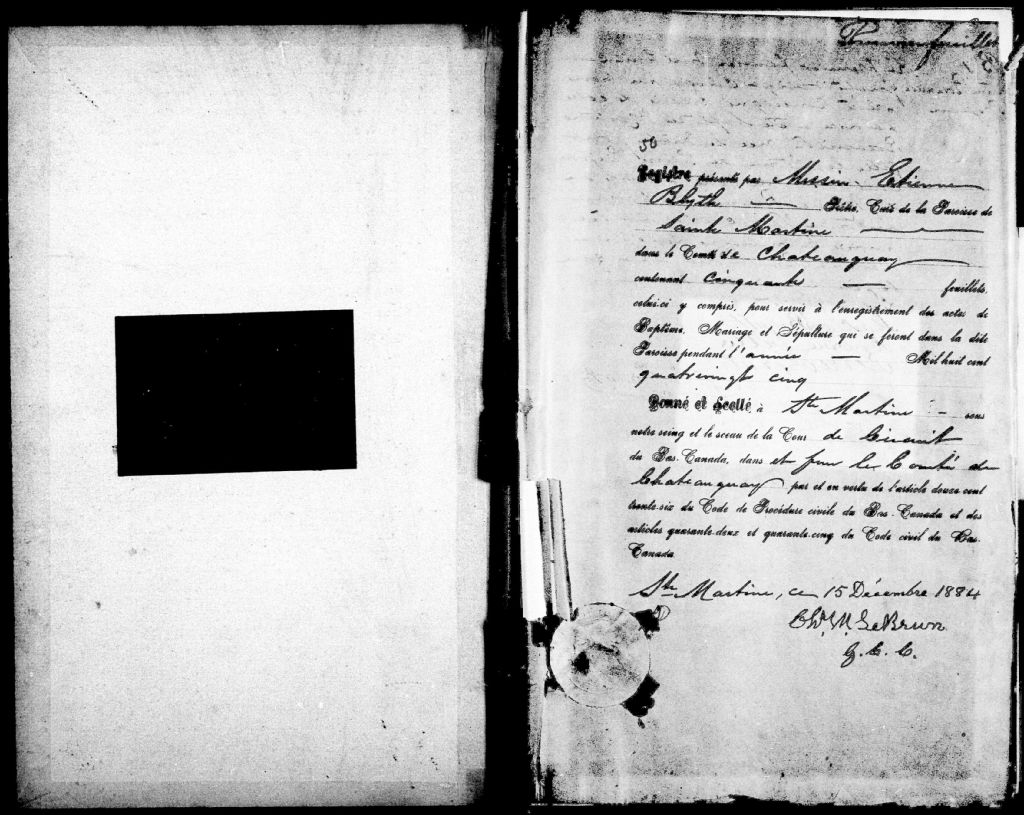 Premier feuillet
50
Registre présenté par Messire Etienne
Blyth — Prêtre, Curé de la Paroisse de
Sainte Martine
dans le Comté de Chateauguay
contenant cinquante — feuillets,
celui-ci y compris, pour servir à l'enregistrement des actes de
Baptême, Mariage et Sépulture qui se feront dans la dite
Paroisse pendant l'année — Mil huit cent
quatrevingt cinq
Donné et Scellé à Ste Martine — sous
notre seing et le sceau de la Cour de Circuit
du Bas-Canada, dans et pour le Comté de
Chateauguay par et en vertu de l'article douze cent
trente-six du Code de Procédure civile du Bas-Canada et des
articles quarante-deux et quarante-cinq du Code civil du Bas-
Canada
Ste Martine, ce 15 Décembre 1884
Chs. M. LeBrun
G. C. C.